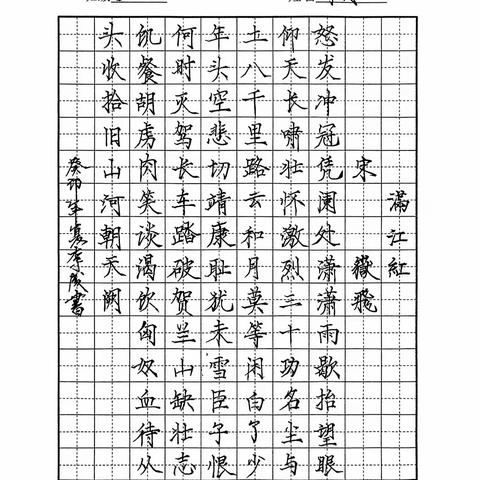 滿江紅
宋 嶽飛
怒发冲冠凭阑处潇潇雨歇抬望眼
仰天长啸壮怀激烈三十功名尘与
土八千里路云和月莫等闲白了少
年头空悲切靖康耻犹未雪臣子恨
何时灭驾长车踏破贺兰山缺壮志
饥餐胡虏肉笑谈渴饮匈奴血待从
头收拾旧山河朝天阙
癸卯年書